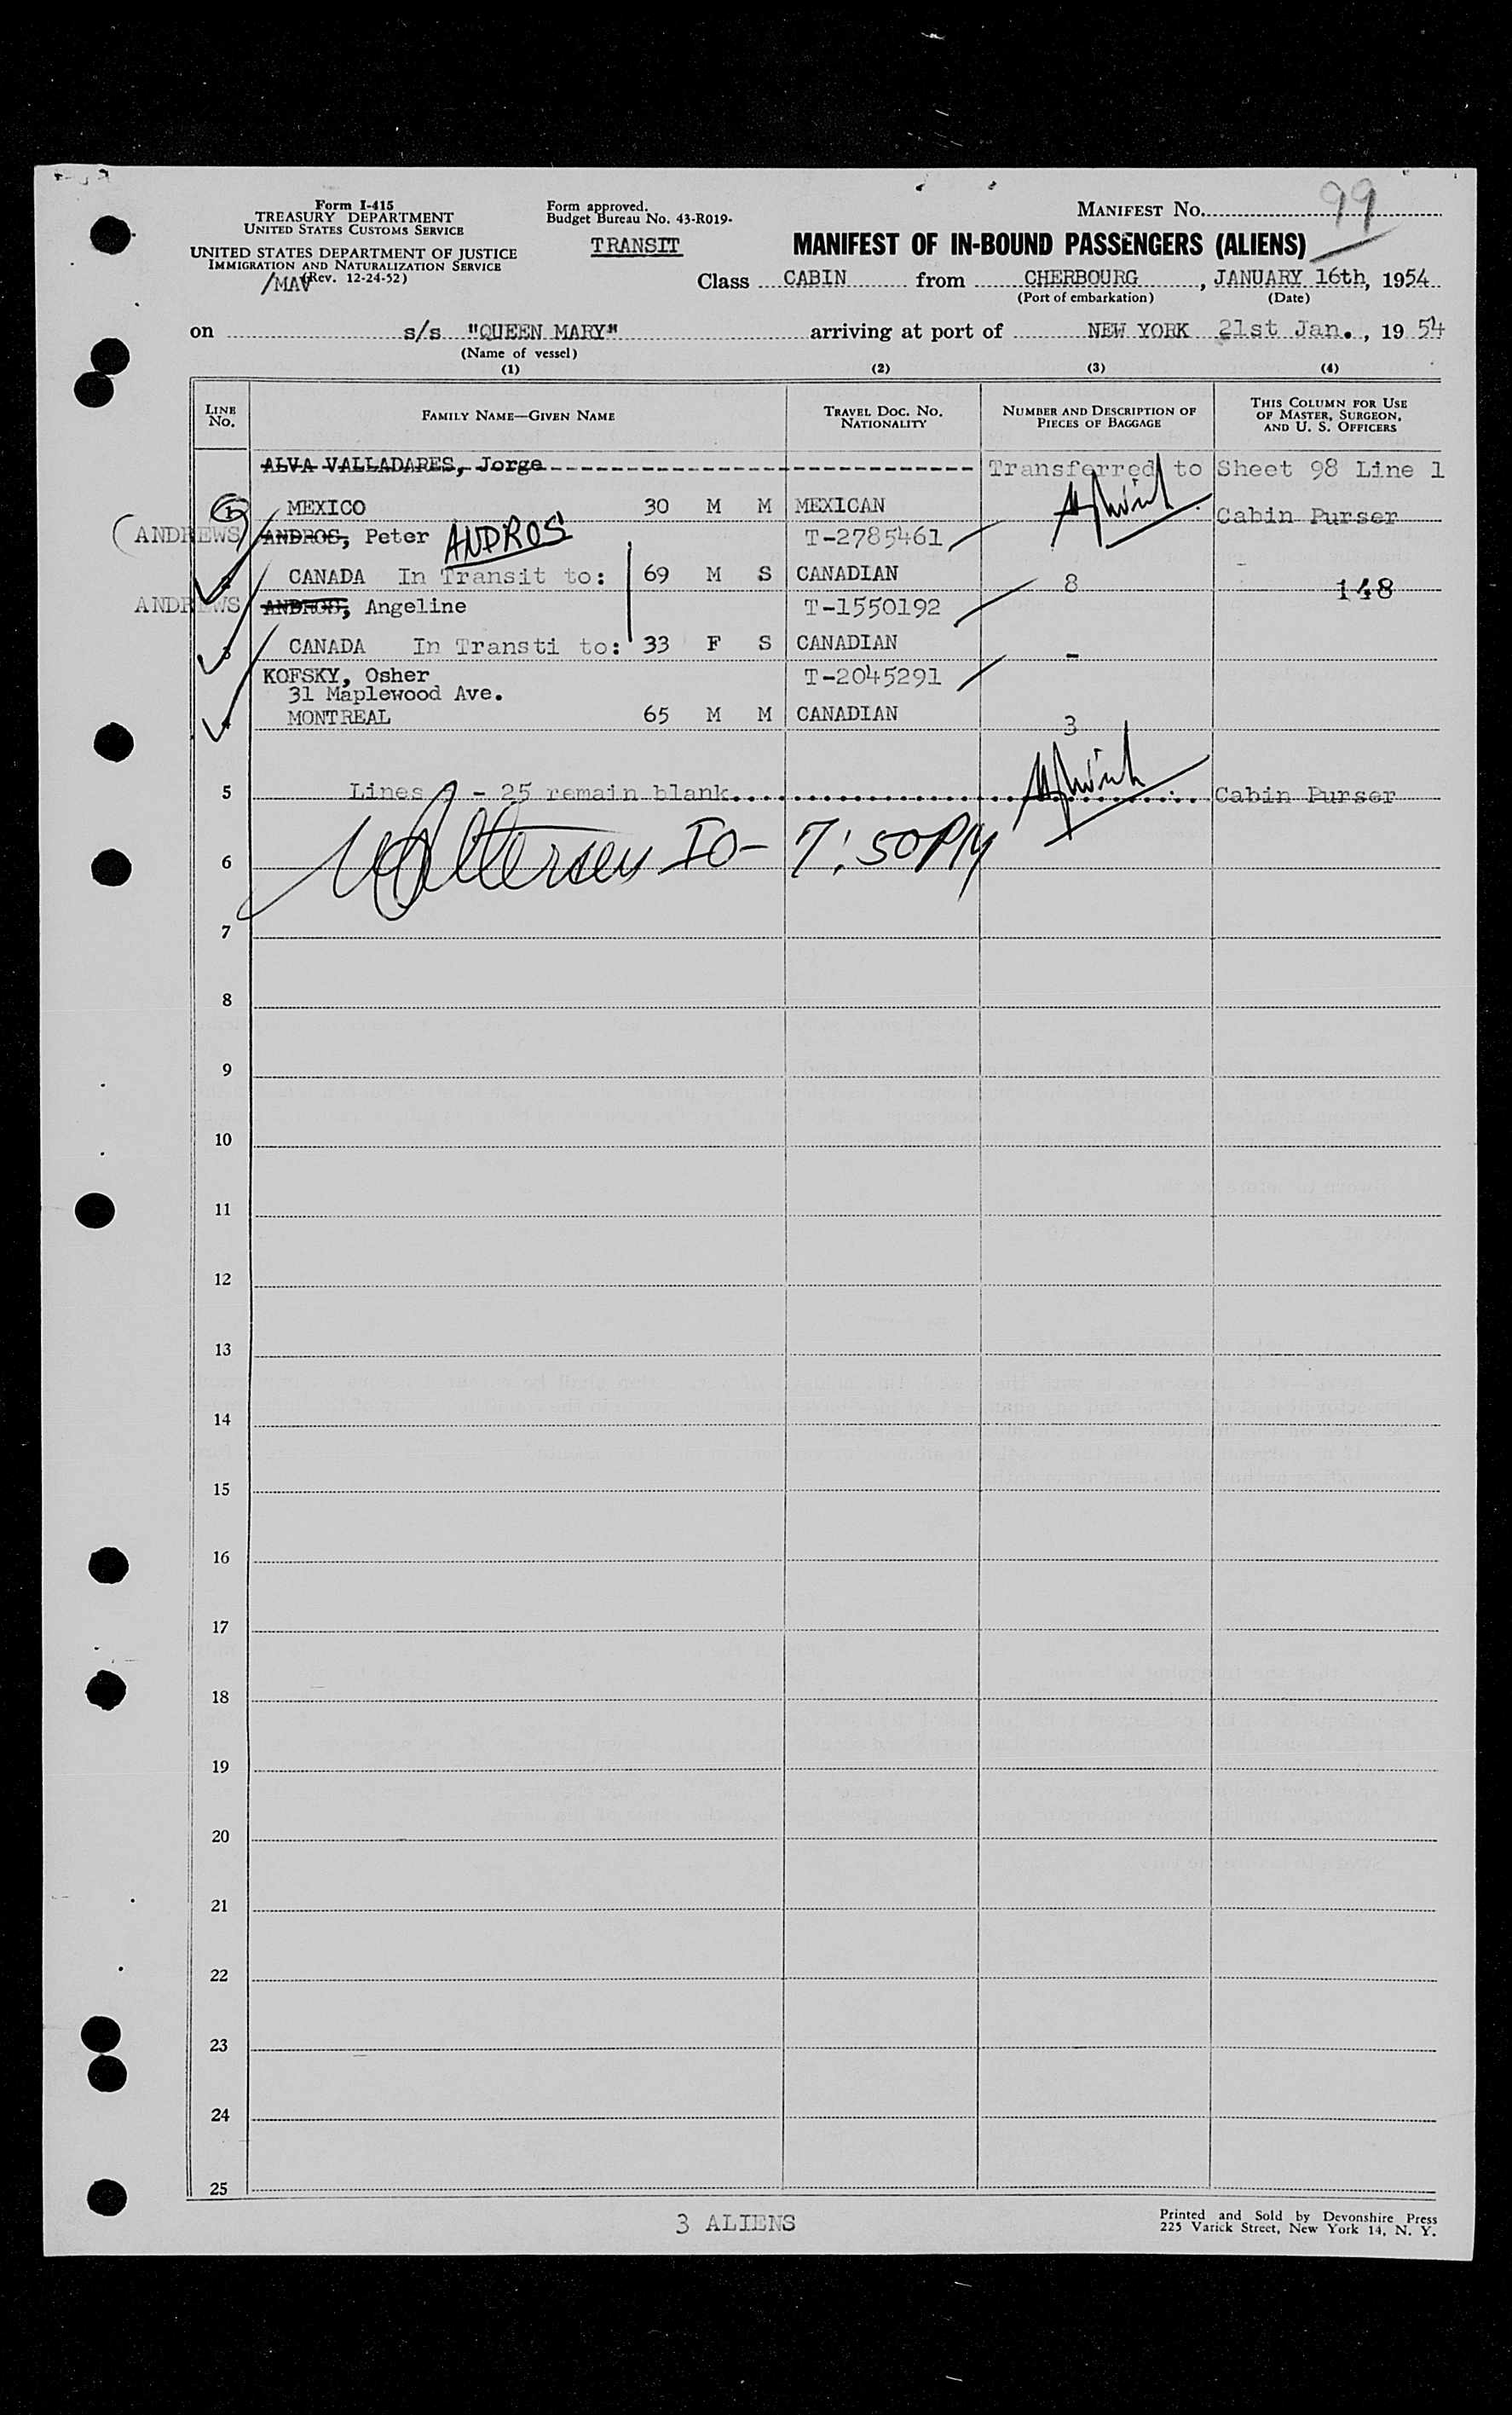 Form I-415
TREASURY DEPARTMENT
UNITED STATES CUSTOMS SERVICE
UNITED STATES DEPARTMENT OF JUSTICE
IMMIGRATION AND NATURALIZATION SERVICE
(Rev. 12-24-52)
/MAV
Form approved.
Budget Bureau No. 43-R019-
TRANSIT
MANIFEST NO. 99
MANIFEST OF IN-BOUND PASSENGERS (ALIENS)
Class CABIN from CHERBOURG, JANUARY 16th, 1954
(Port of embarkation) (Date)
on s/s "QUEEN MARY" arriving at port of NEW YORK 21st Jan., 19 54
(Name of vessel)
(1) (2) (3) (4)
LINE NO. FAMILY NAME—GIVEN NAME TRAVEL DOC. NO. NATIONALITY NUMBER AND DESCRIPTION OF PIECES OF BAGGAGE THIS COLUMN FOR USE OF MASTER, SURGEON, AND U. S. OFFICERS
ALVA VALLADARES, Jorge Transferred to Sheet 98 Line 1
1 MEXICO 30 M M MEXICAN Cabin Purser
(ANDREWS) ANDROS, Peter ANDROS T-2785461
2 CANADA In Transit to: 69 M S CANADIAN 8 148
ANDREWS ANDROS, Angeline T-1550192
3 CANADA In Transti to: 33 F S CANADIAN -
KOFSKY, Osher T-2045291
31 Maplewood Ave.
4 MONTREAL 65 M M CANADIAN 3
5 Lines - 25 remain blank Cabin Purser
IO- 7:50PM
6
7
8
9
10
11
12
13
14
15
16
17
18
19
20
21
22
23
24
25
3 ALIENS
Printed and Sold by Devonshire Press
225 Varick Street, New York 14, N. Y.